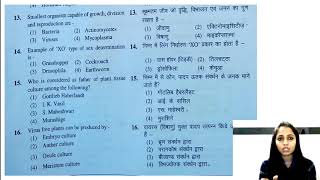 13. Smallest organism capable of growth, division and reproduction are :
(1) Bacteria (2) Actinomycetes
(3) Viruses (4) Mycoplasma
14. Example of 'XO' type of sex determination is -
(1) Grasshopper (2) Cockroach
(3) Drosophila (4) Earthworm
15. Who is considered as father of plant tissue culture among the following?
(1) Gottlieb Haberlandt
(2) I. K. Vasil
(3) S. Maheshwari
(4) Murashige
16. Virus free plants can be produced by -
(1) Embryo culture
(2) Anther culture
(3) Ovule culture
(4) Meristem culture
13. सूक्ष्मतम जीव जो वृद्धि, विभाजन एवं जनन का गुण रखता है -
(1) जीवाणु (2) एक्टिनोमाइसिटीज
(3) विषाणु (4) माइकोप्लाज्मा
14. निम्न में लिंग निर्धारण 'XO' प्रकार का होता है -
(1) घास हॉपर (टिड्डी) (2) तिलचट्टा
(3) ड्रोसोफिला (4) केंचुआ
15. निम्न में से कौन, पादप ऊतक संवर्धन के जनक माने जाते हैं?
(1) गोटलिब हैबरलैंड
(2) आई. के वासिल
(3) एस. माहेश्वरी
(4) मुराशिगे
16.
(1) भ्रूण संवर्धन द्वारा
(2) परागकोष संवर्धन द्वारा
(3) बीजाण्ड संवर्धन द्वारा